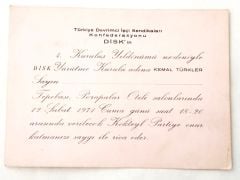 Türkiye Devrimci İşçi Sendikaları
Konfederasyonu
DİSK'in
4. Kuruluş Yıldönümü nedeniyle
DİSK Yürütme Kurulu adına KEMAL TÜRKLER
Sayın
Tepebaşı, Perapalas Oteli salonlarında
12 Şubat 1971 Cuma günü saat 18-20
arasında verilecek Kokteyl Partiye onur
katmanızı saygı ile rica eder.